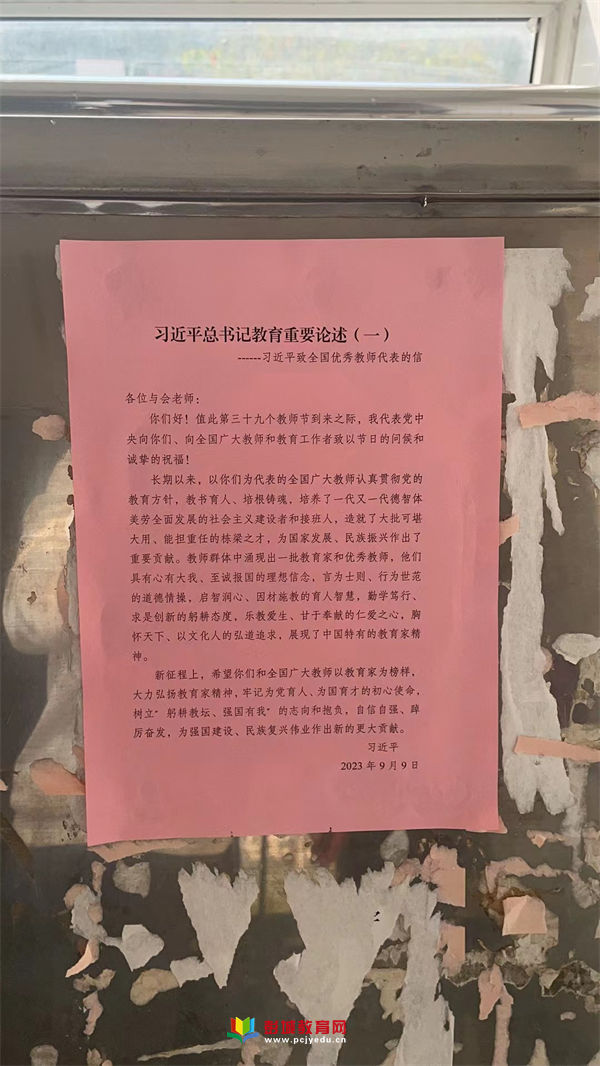 习近平总书记教育重要论述（一）
------习近平致全国优秀教师代表的信
各位与会老师：
你们好！值此第三十九个教师节到来之际，我代表党中
央向你们、向全国广大教师和教育工作者致以节日的问候和
诚挚的祝福！
长期以来，以你们为代表的全国广大教师认真贯彻党的
教育方针，教书育人、培根铸魂，培养了一代又一代德智体
美劳全面发展的社会主义建设者和接班人，造就了大批可堪
大用、能担重任的栋梁之才，为国家发展、民族振兴作出了
重要贡献。教师群体中涌现出一批教育家和优秀教师，他们
具有心有大我、至诚报国的理想信念，言为士则、行为世范
的道德情操，启智润心、因材施教的育人智慧，勤学笃行、
求是创新的躬耕态度，乐教爱生、甘于奉献的仁爱之心，胸
怀天下、以文化人的弘道追求，展现了中国特有的教育家精
神。
新征程上，希望你们和全国广大教师以教育家为榜样，
大力弘扬教育家精神，牢记为党育人、为国育才的初心使命，
树立“躬耕教坛、强国有我”的志向和抱负，自信自强、踔
厉奋发，为强国建设、民族复兴伟业作出新的更大贡献。
习近平
2023年9月9日
彭城教育网
www.pcjyedu.cn